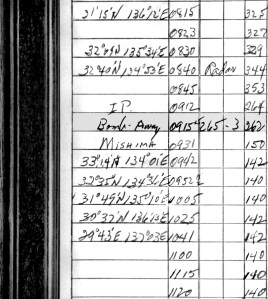 31°15'N 136°12'E 0815 325
0823 327
32°09'N 135°34'E 0830 329
32°40'N 134°53'E 0840 344
0845 353
I.P. 0912 264
Bombs-Away 0915 265-3 262
MISHIMA 0931 150
33°14'N 134°01'E 0942 142
32°35'N 134°36'E 0952 140
31°49'N 135°10'E 1005 140
30°37'N 136°13'E 1025 142
29°43'E 137°03'E 1041 142
1100 140
1115 140
1120 140